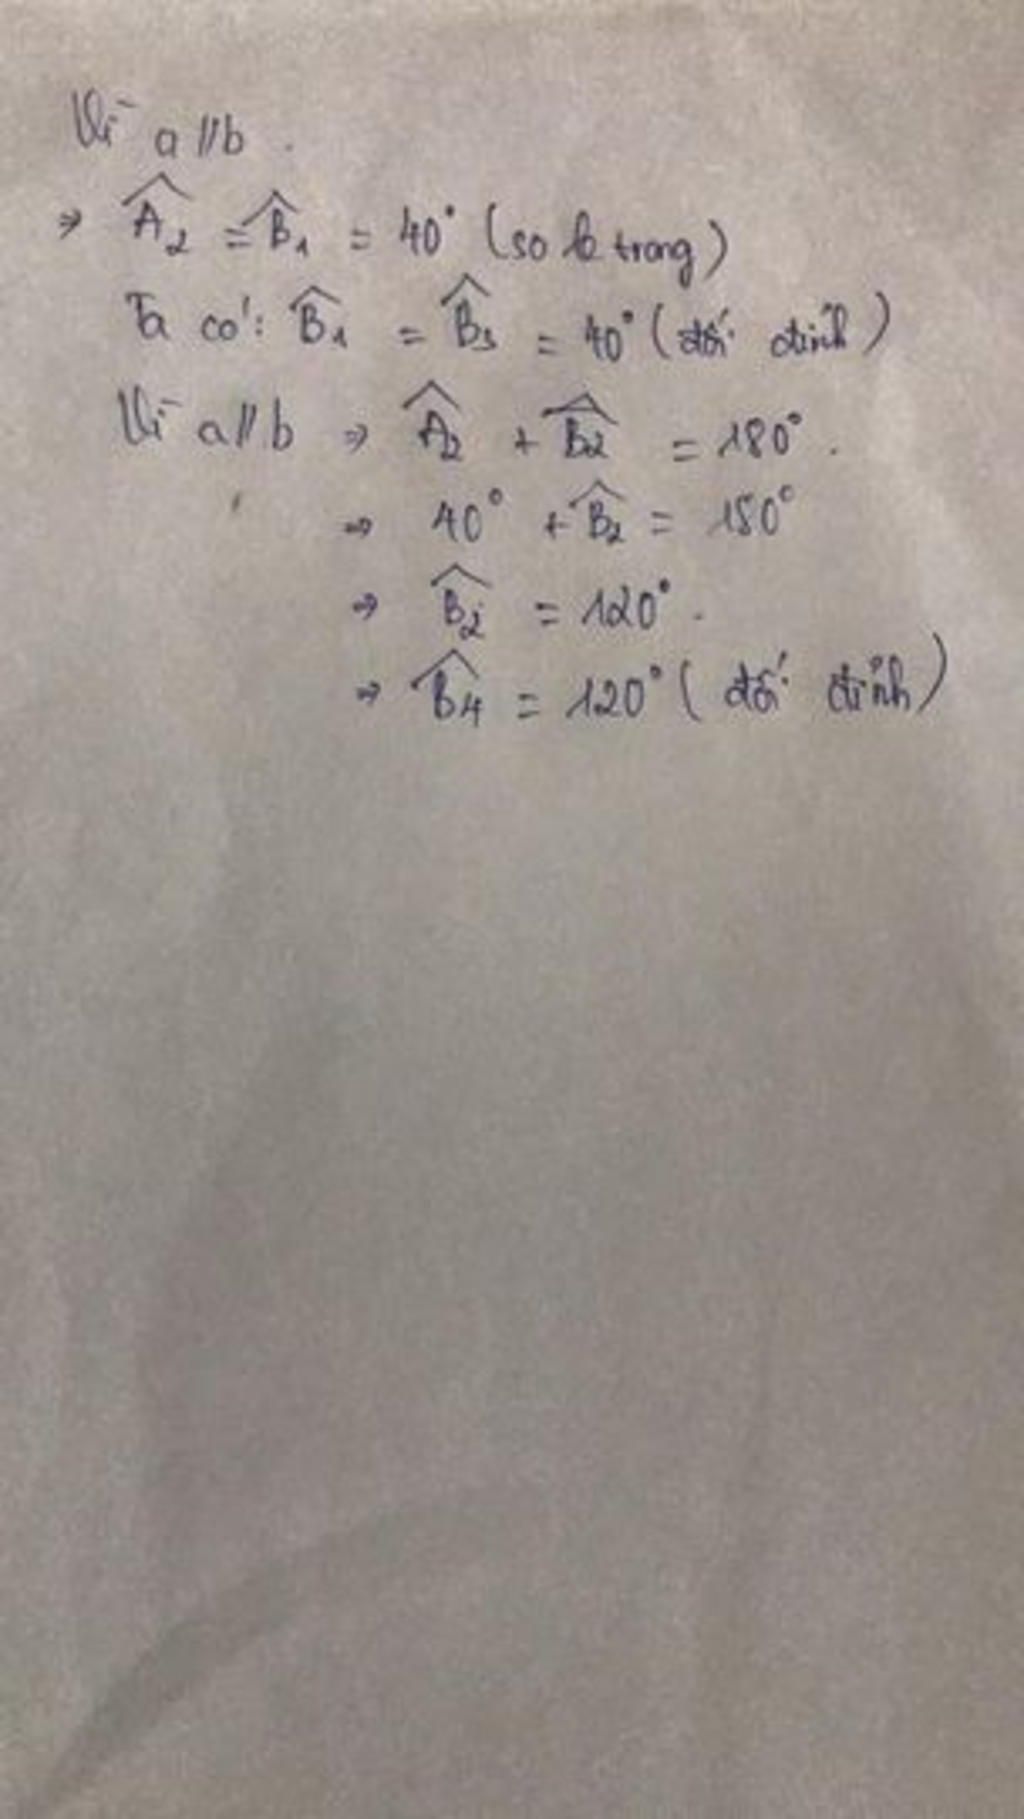 Vì a // b.
⇒ Â₂ = B̂₁ = 40° (so le trong)
Ta có: B̂₁ = B̂₃ = 40° (đối đỉnh)
Vì a // b ⇒ Â₂ + B̂₂ = 180°.
⇒ 40° + B̂₂ = 180°
⇒ B̂₂ = 120°.
⇒ B̂₄ = 120° (đối đỉnh)